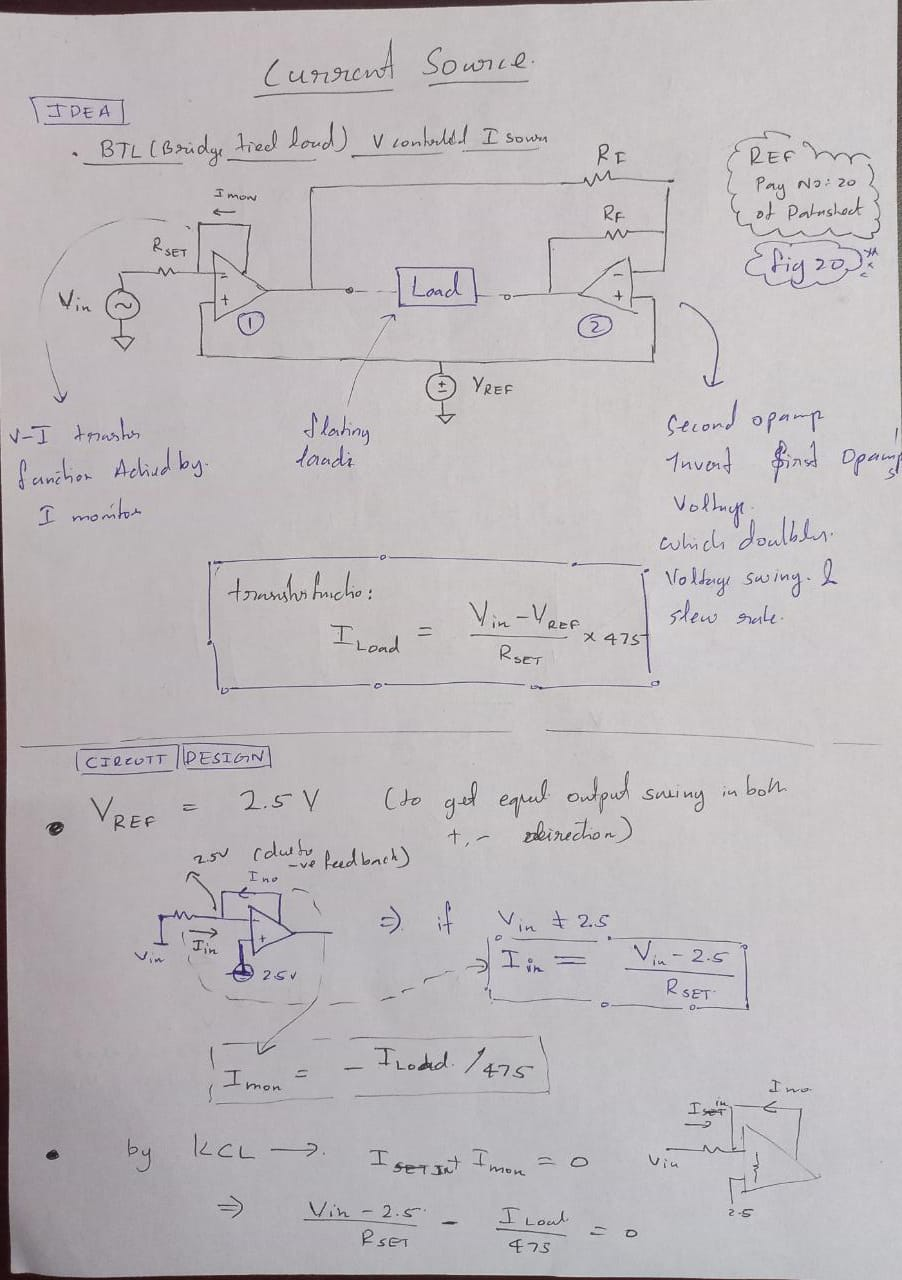 Current Source.
IDEA
. BTL (Bridge tied load) V controlled I sourn
REF
Pay No: 20
of Datasheet
fig 20
RI
RF
I mon
RSET
Vin
-
+
1
Load
-
+
2
VREF
V-I transfer
function Achied by.
I monitor
floting
loads
Second opamp
Invert first Opamp's
Voltage.
which doulbles.
Voltage swing. &
slew rate.
transfer functio:
ILoad = Vin - VREF / RSET x 475
CIRCUTT DESIGN
VREF = 2.5 V (to get equal output swing in both
+, - direction)
2.5V (due to
-ve feedback)
Imo
Vin
Iin
-
+
2.5V
=> if Vin ≠ 2.5
Iin = Vin - 2.5 / RSET
Imon = - ILoad. / 475
Imo
Iin
Vin
2.5
by KCL → ISET In + Imon = 0
=> Vin - 2.5 / RSET - ILoad / 475 = 0